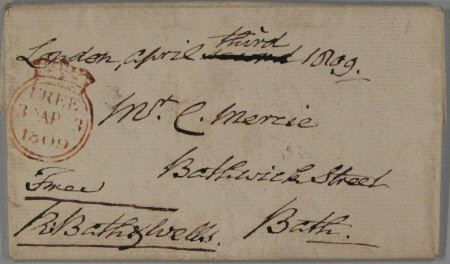 third
London, April second 1809.
FREE
3 AP 3
1809
Mr. C. Mercie
Bathwick Street
Bath.
Free
R. Bath & Wells.